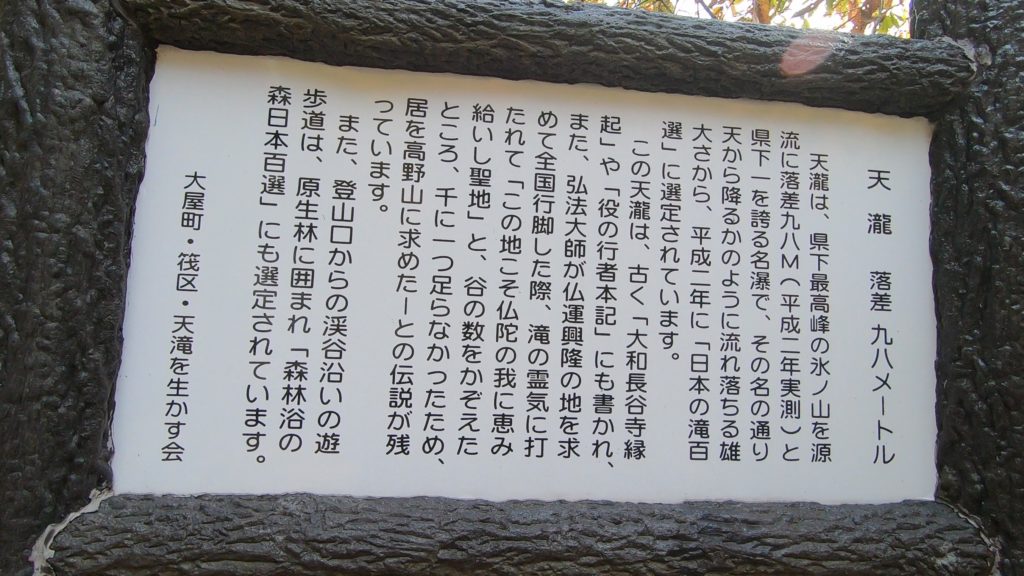 天瀧 落差 九八メートル
天瀧は、県下最高峰の氷ノ山を源
流に落差九八M（平成二年実測）と
県下一を誇る名瀑で、その名の通り
天から降るかのように流れ落ちる雄
大さから、平成二年に「日本の滝百
選」に選定されています。
この天瀧は、古く「大和長谷寺縁
起」や「役の行者本記」にも書かれ、
また、弘法大師が仏運興隆の地を求
めて全国行脚した際、滝の霊気に打
たれて「この地こそ仏陀の我に恵み
給いし聖地」と、谷の数をかぞえた
ところ、千に一つ足らなかったため、
居を高野山に求めたーとの伝説が残
っています。
また、登山口からの渓谷沿いの遊
歩道は、原生林に囲まれ「森林浴の
森日本百選」にも選定されています。
大屋町・筏区・天滝を生かす会